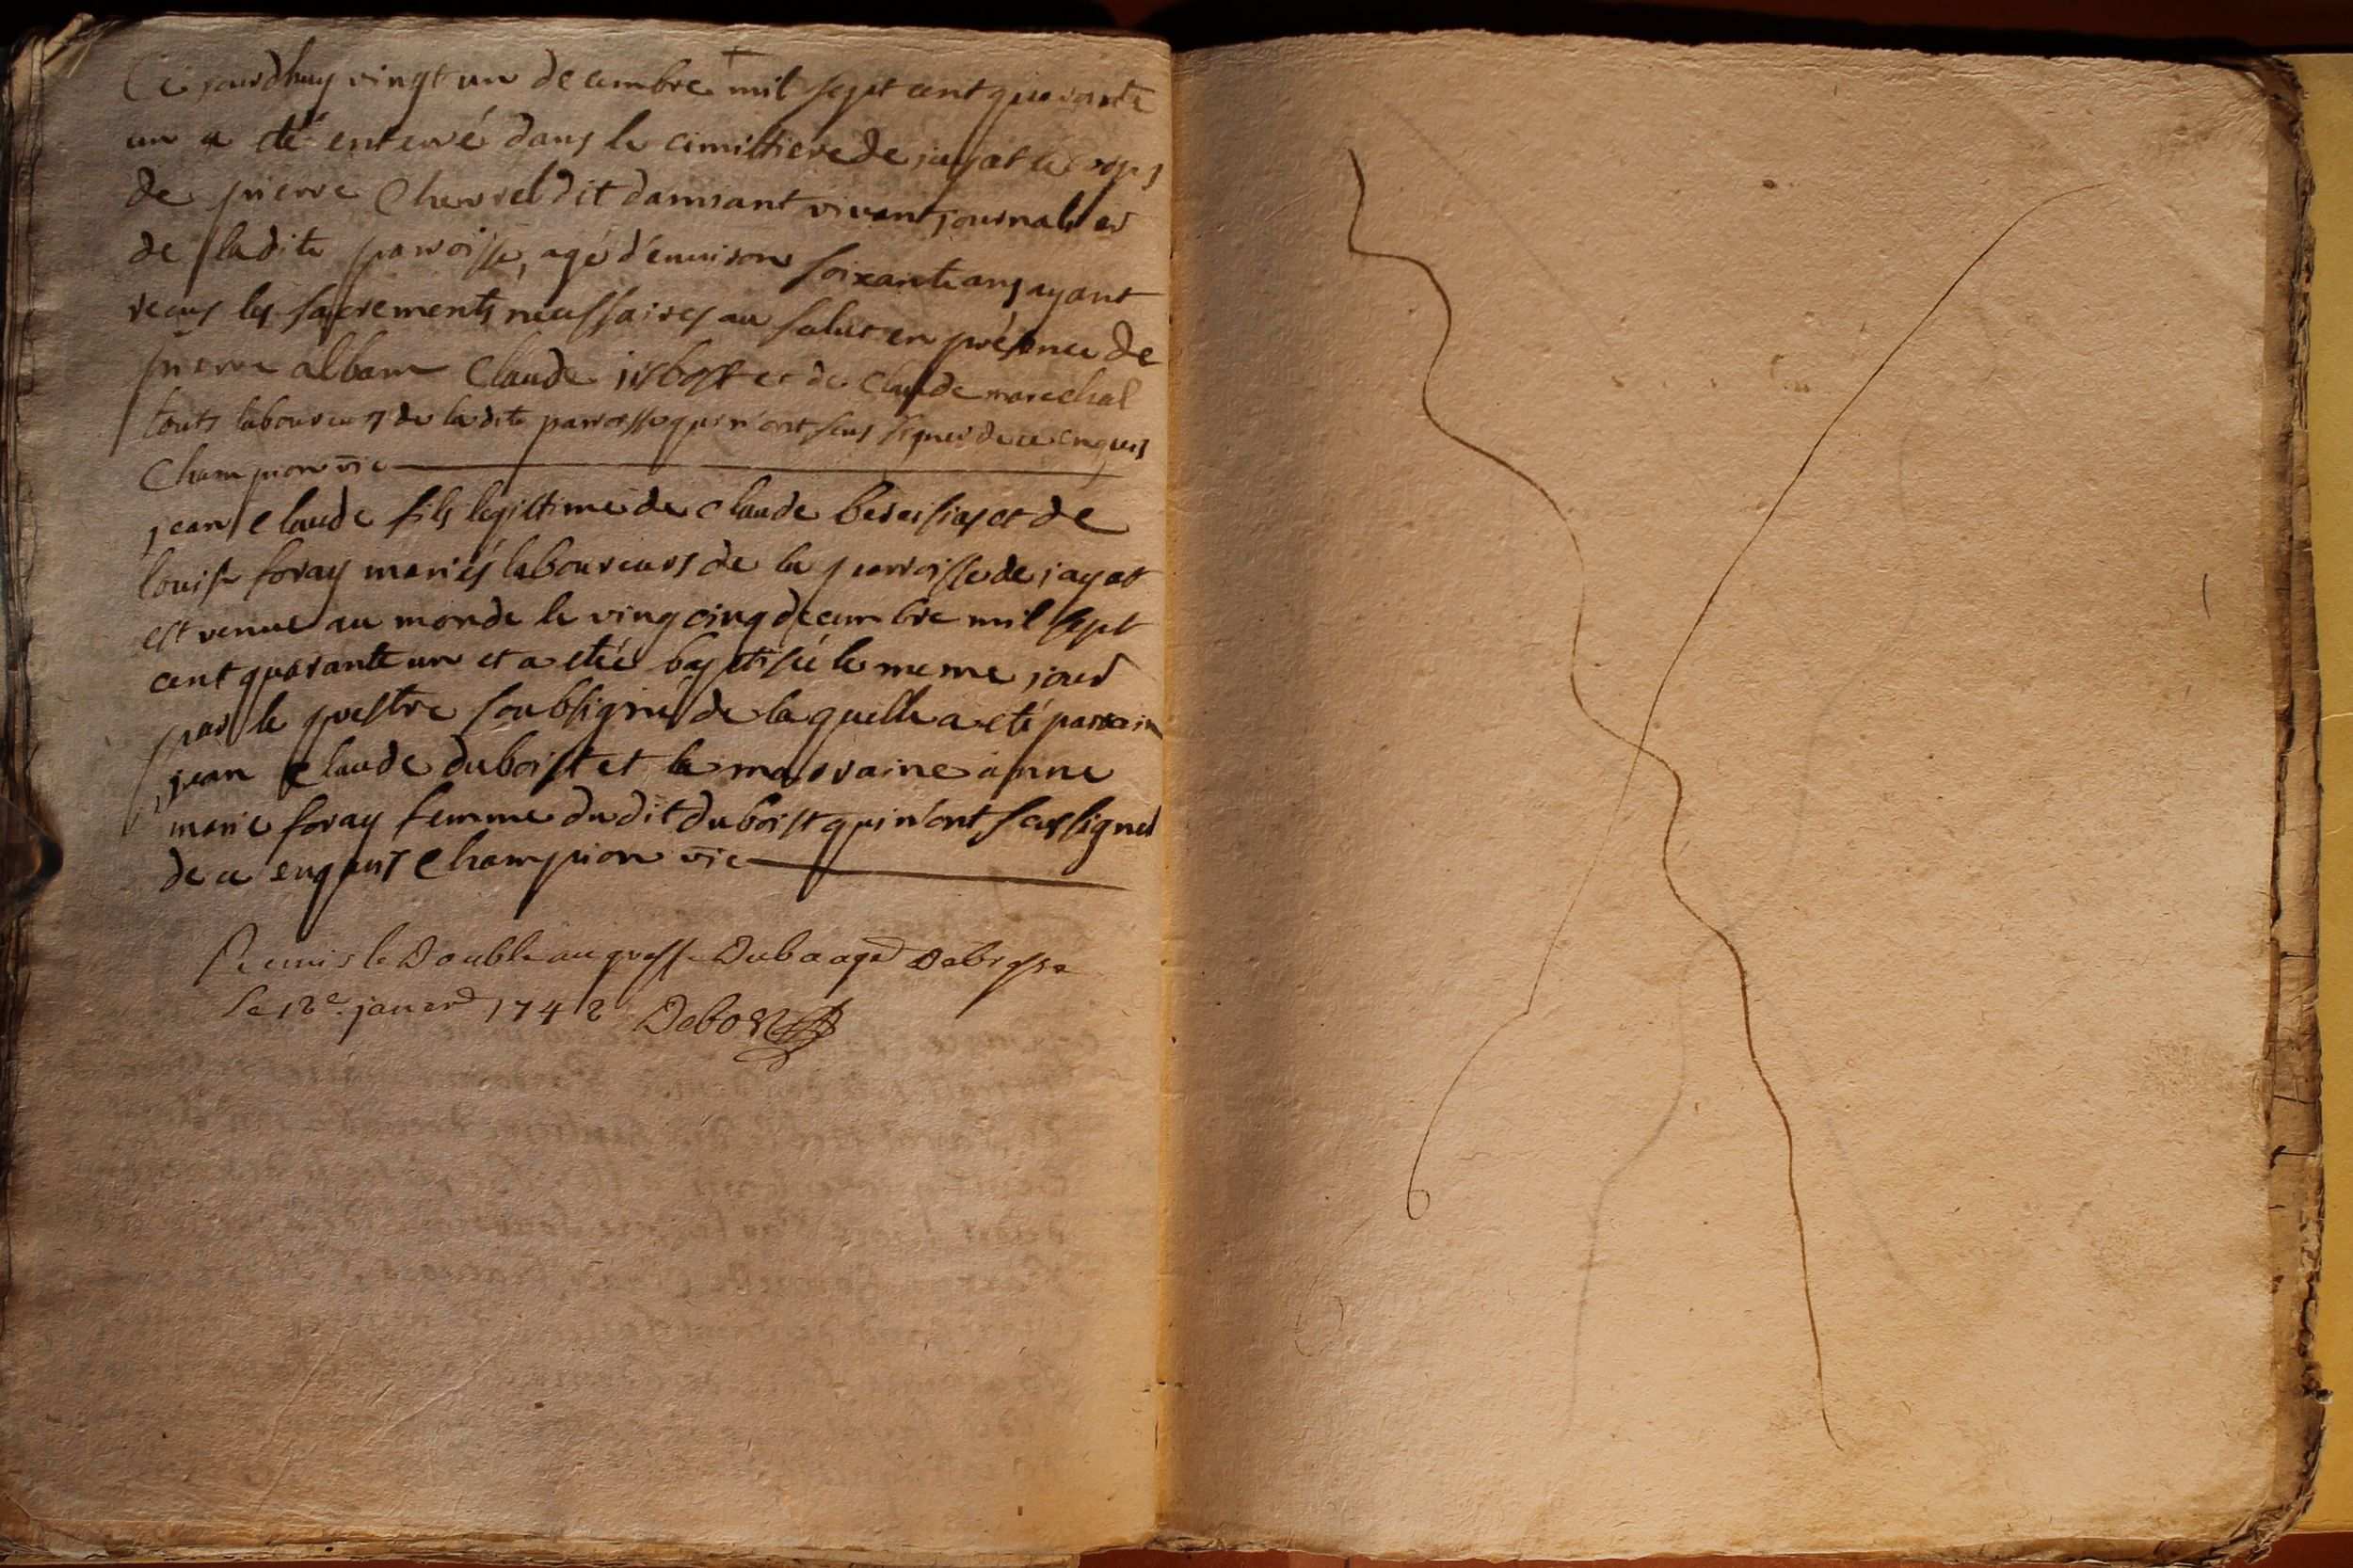 Ce jourdhuy vingt un decembre mil sept cent quarante
un a eté enterré dans le cimittiere de jayat le corps
de pierre Chevrel dit damiant vivant journalier
de ladite parroisse, agé d'environ soixante ans ayant
receus les sacrements necessaires au salut en présence de
pierre alban Claude et de Claude marechal
touts laboureurs de la dite parroisse qui n'ont sceus signer de ce enquis
Champion vic
jean Claude fils legittime de Claude et de
louise foray mariés laboureurs de la parroisse de jayat
est venue au monde le ving cinq decembre mil sept
cent quarante un et a etéé baptiséé le meme jour
par le prestre soubsigné de laquelle a eté parrain
jean Claude duboist et la marraine anne
marie foray femme dudit duboist qui n'ont sceus signer
de ce enquis Champion vic
Remis le Double au greffe Du baage De bresse
Le 12e janvier 1742 Debost